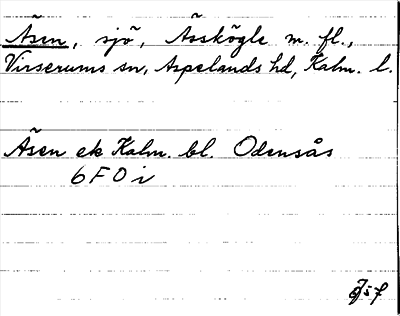 Åsen, sjö, Åsskögle m. fl.,
Virserums sn, Aspelands hd, Kalm. l.
Åsen ek Kalm. bl. Odensås
6 F O i